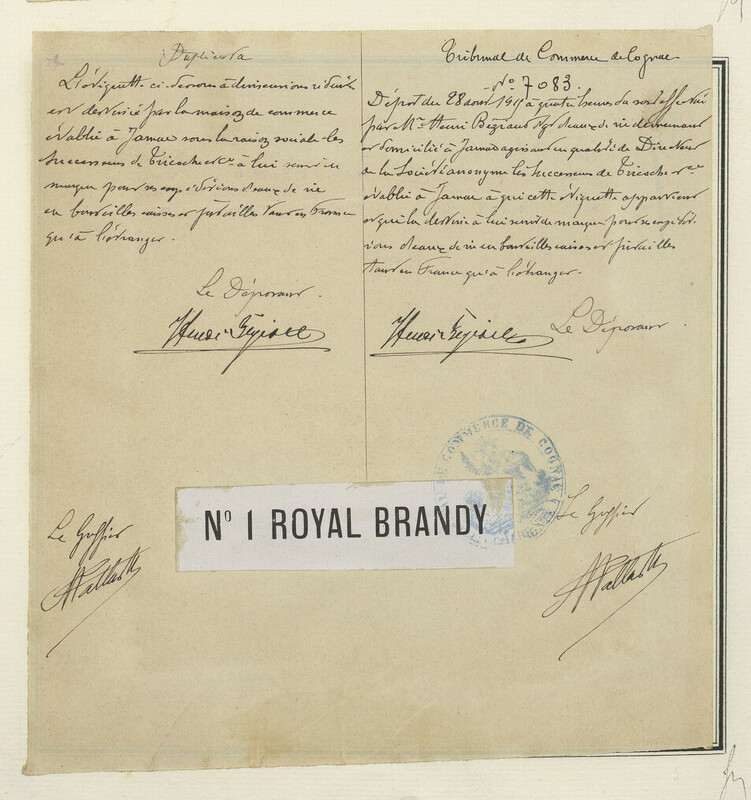 Duplicata
L'étiquette ci-dessous à dimensions réduites
est destinée par la maison de commerce
établie à Jarnac sous la raison sociale les
Successeurs de Tricoche & Cie à lui servir de
marque pour ses expéditions d'eaux de vie
en bouteilles caisses et futailles tant en France
qu'à l'étranger.
Le Déposant.
Le Greffier
Tribunal de Commerce de Cognac
No 7083.
Dépôt du 28 août 1911 à quatre heures du soir effectué
par Mr Henri négt d'eaux de vie demeurant
et domicilié à Jarnac agissant en qualité de Directeur
de la Société anonyme les Successeurs de Tricoche & Cie
établie à Jarnac à qui cette étiquette appartient
et qui la destine à lui servir de marque pour ses expédi-
tions d'eaux de vie en bouteilles caisses et futailles
tant en France qu'à l'étranger.
Henri
Henri
Le Déposant
DE COMMERCE DE COGNAC
No 1 ROYAL BRANDY
Le Greffier